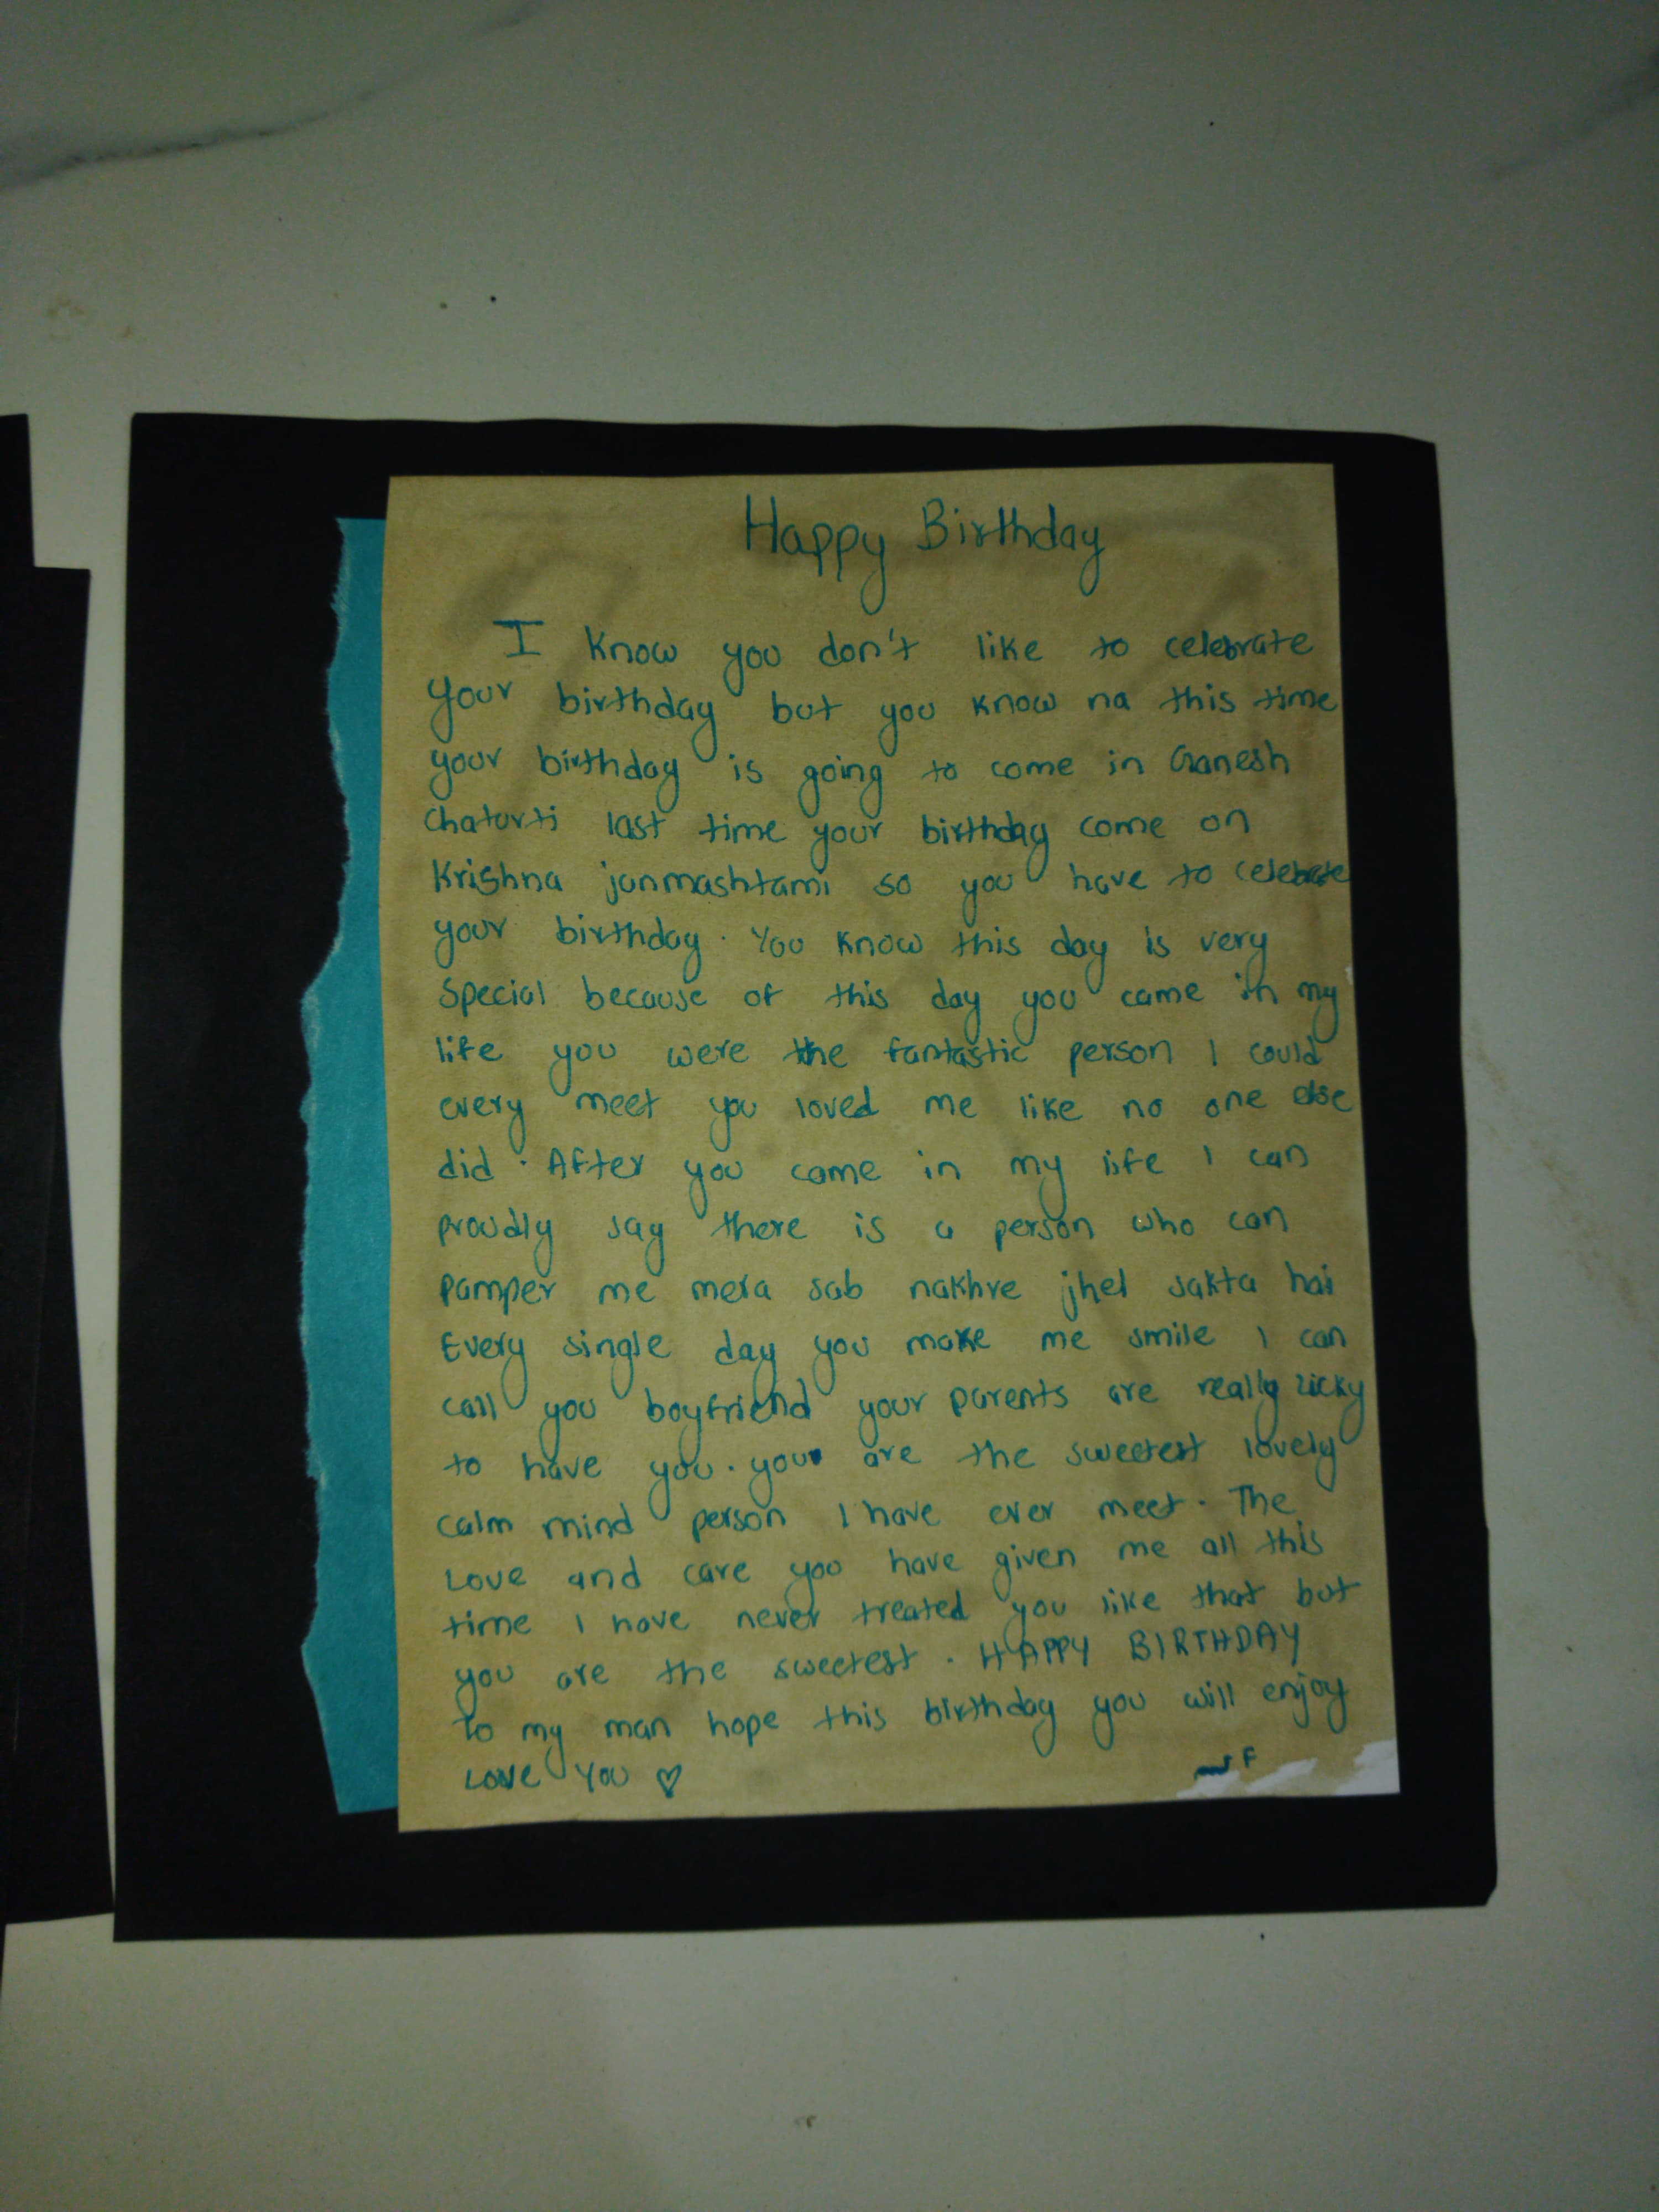 Happy Birthday
I know you don't like to celebrate
your birthday but you know na this time
your birthday is going to come in Ganesh
Chaturti last time your birthday come on
Krishna janmashtami so you have to celebrate
your birthday. You know this day is very
special because of this day you came in my
life you were the fantastic person I could
every meet you loved me like no one else
did. After you came in my life I can
proudly say there is a person who can
pamper me mera sab nakhre jhel sakta hai
Every single day you make me smile I can
call you boyfriend your parents are really licky
to have you. you are the sweetest lovely
calm mind person I have ever meet. The
Love and care you have given me all this
time I have never treated you like that but
you are the sweetest. HAPPY BIRTHDAY
To my man hope this birthday you will enjoy
Love You ♡
F